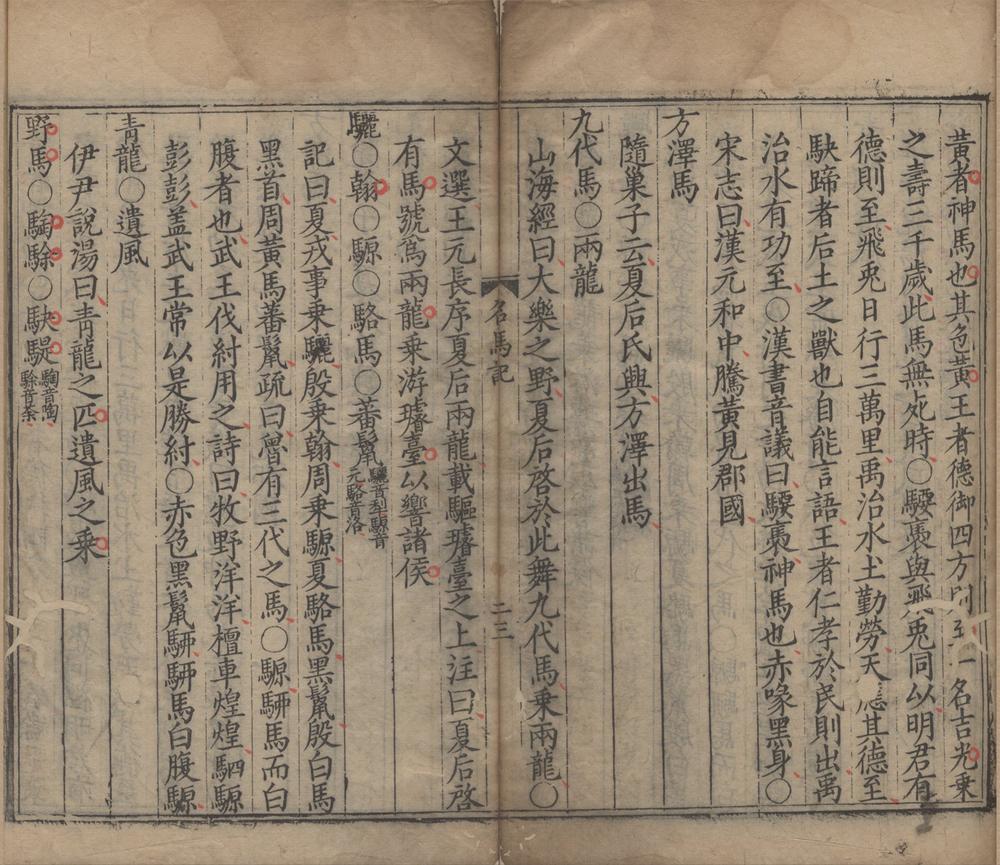 黃者神馬也其色黃王者德御四方則至一名吉光乗
之壽三千歲此馬無死時〇騕褭與飛兎同以明君有
德則至飛兎日行三萬里禹治水土勤勞天應其德至
駃蹄者后土之獸也自能言語王者仁孝於民則出禹
治水有功至〇漢書音議曰騕褭神馬也赤喙黑身〇
宋志曰漢元和中騰黃見郡國
方澤馬
隨巢子云夏后氏興方澤出馬
九代馬〇兩龍
山海經曰大樂之野夏后啓於此舞九代馬乗兩龍〇
名馬記
二三
文選王元長序夏后兩龍載驅璿臺之上注曰夏后啓
有馬號爲兩龍乗游璿臺以響諸侯
驪〇翰〇騵〇駱馬〇蕃鬣驪音犁騵音元駱音洛
記曰夏戎事乗驪殷乗翰周乗騵夏駱馬黑鬣殷白馬
黑首周黃馬蕃鬣疏曰曾有三代之馬〇騵駵馬而白
腹者也武王伐紂用之詩曰牧野洋洋檀車煌煌駟騵
彭彭盖武王常以是勝紂〇赤色黑鬣駵駵馬白腹騵
靑龍〇遺風
伊尹說湯曰靑龍之匹遺風之乗
野馬〇騊駼〇駃騠騊音陶駼音荼